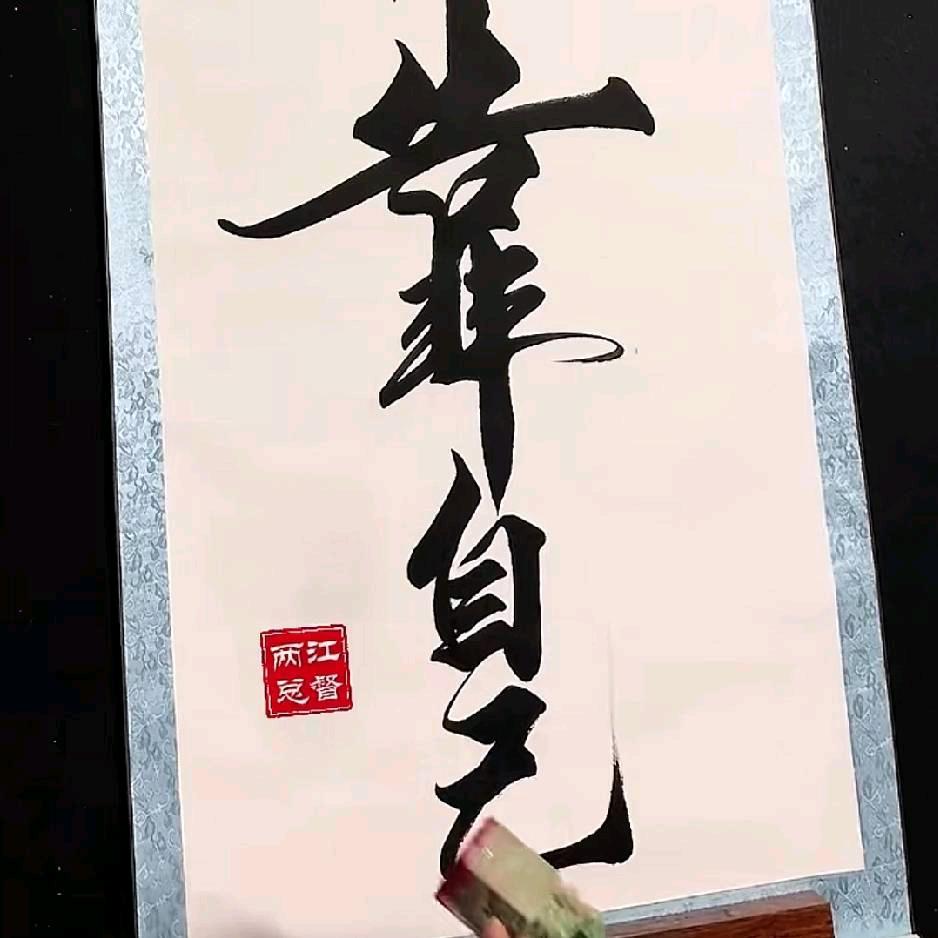 靠自己
江督
两总